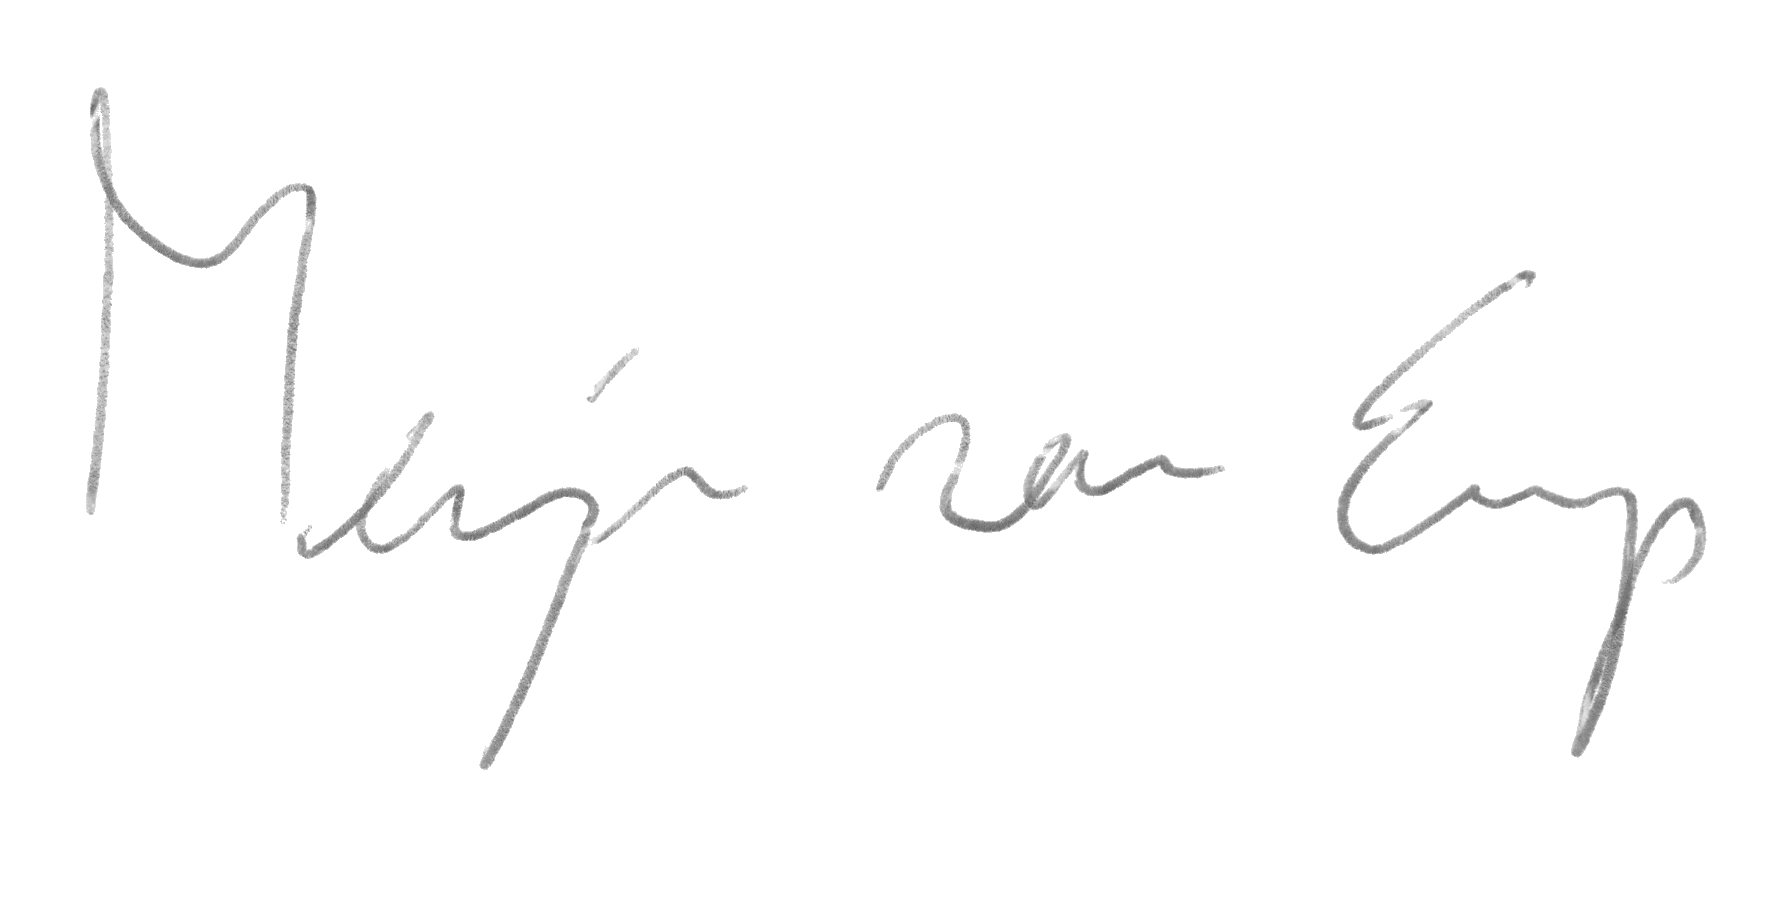 Meijn van Emp